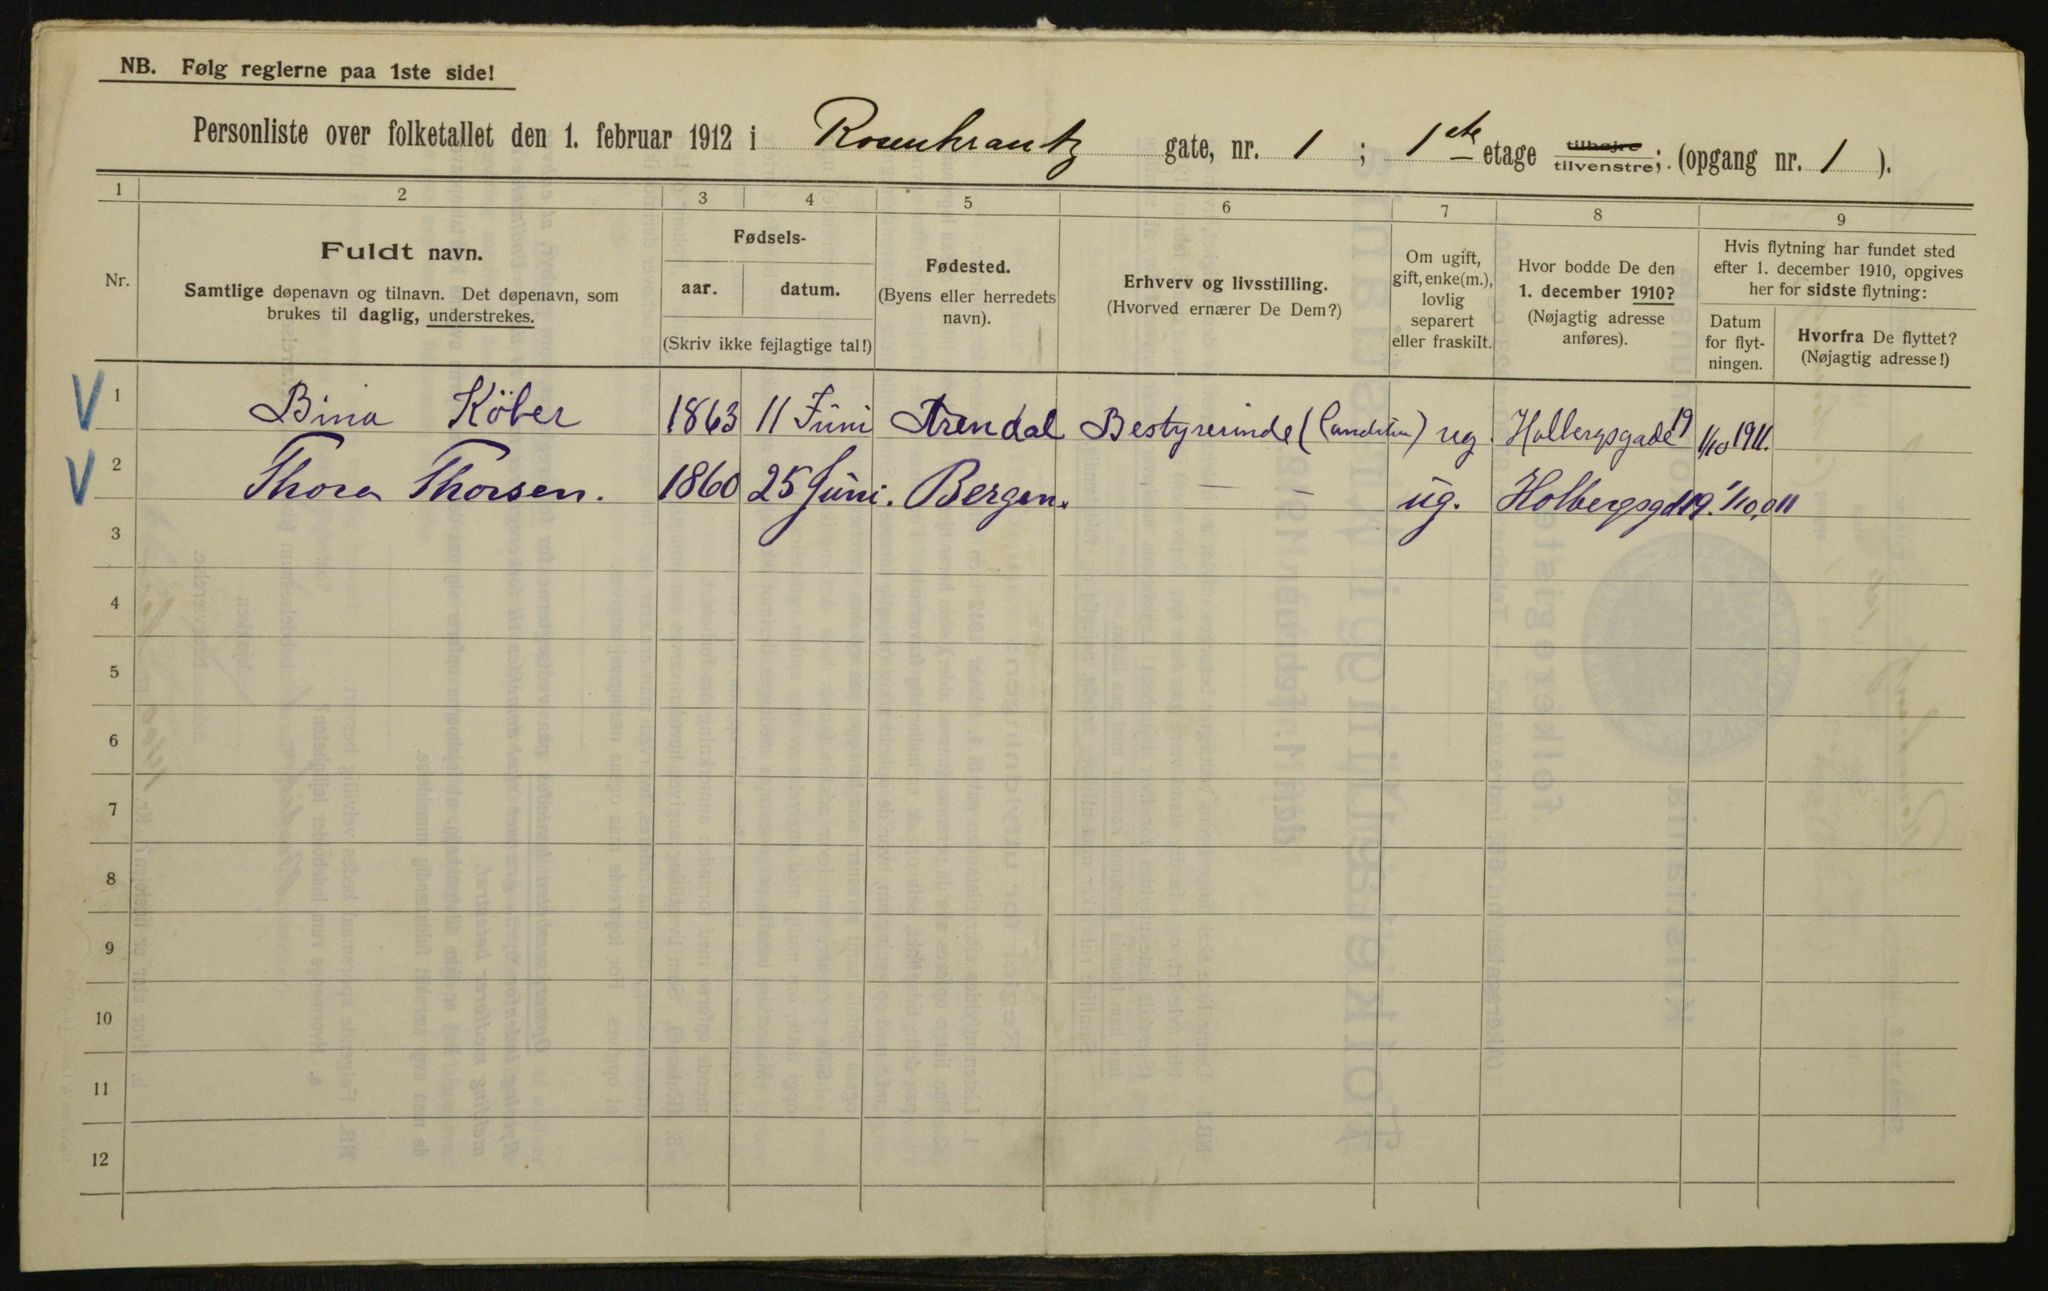 NB. Følg reglerne paa 1ste side!
Personliste over folketallet den 1. februar 1912 i Rosenkrantz gate, nr. 1 ; 1ste etage tilhøjre tilvenstre; (opgang nr. 1 ).
1 2 3 4 5 6 7 8 9
Nr.
Fuldt navn.
Samtlige døpenavn og tilnavn. Det døpenavn, som
brukes til daglig, understrekes.
Fødsels-
aar. datum.
(Skriv ikke fejlagtige tal!)
Fødested.
(Byens eller herredets
navn).
Erhverv og livsstilling.
(Hvorved ernærer De Dem?)
Om ugift,
gift, enke(m.),
lovlig
separert
eller fraskilt.
Hvor bodde De den
1. december 1910?
(Nøjagtig adresse
anføres).
Hvis flytning har fundet sted
efter 1. december 1910, opgives
her for sidste flytning:
Datum
for flyt-
ningen.
Hvorfra De flyttet?
(Nøjagtig adresse!)
V 1 Bina Köber 1863 11 Juni Arendal Bestyrerinde ug Holbergsgade 19 1/10 1911.
V 2 Thora Thorsen. 1860 25 Juni. Bergen. – – – ug. Holbergsgd 19. 1/10, 011
3
4
5
6
7
8
9
10
11
12